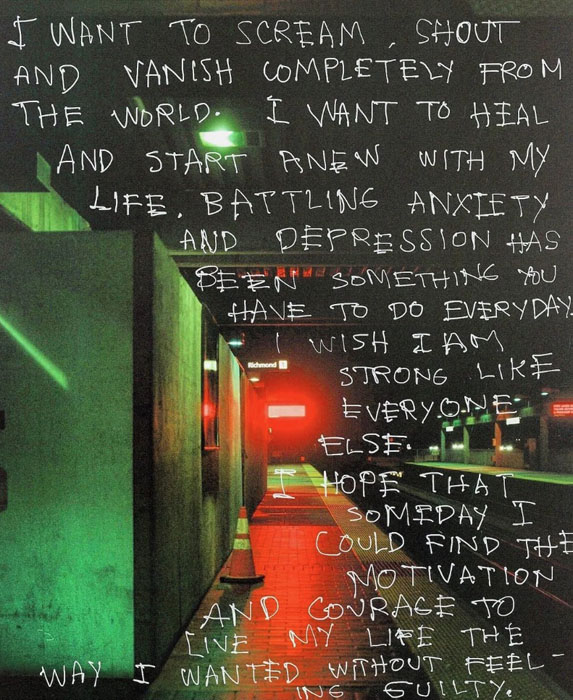 I WANT TO SCREAM, SHOUT
AND VANISH COMPLETELY FROM
THE WORLD. I WANT TO HEAL
AND START ANEW WITH MY
LIFE. BATTLING ANXIETY
AND DEPRESSION HAS
BEEN SOMETHING YOU
HAVE TO DO EVERYDAY.
I WISH I AM
Richmond
STRONG LIKE
EVERYONE
ELSE.
I HOPE THAT
SOMEDAY I
COULD FIND THE
MOTIVATION
AND COURAGE TO
LIVE MY LIFE THE
WAY I WANTED WITHOUT FEEL-
ING GUILTY.